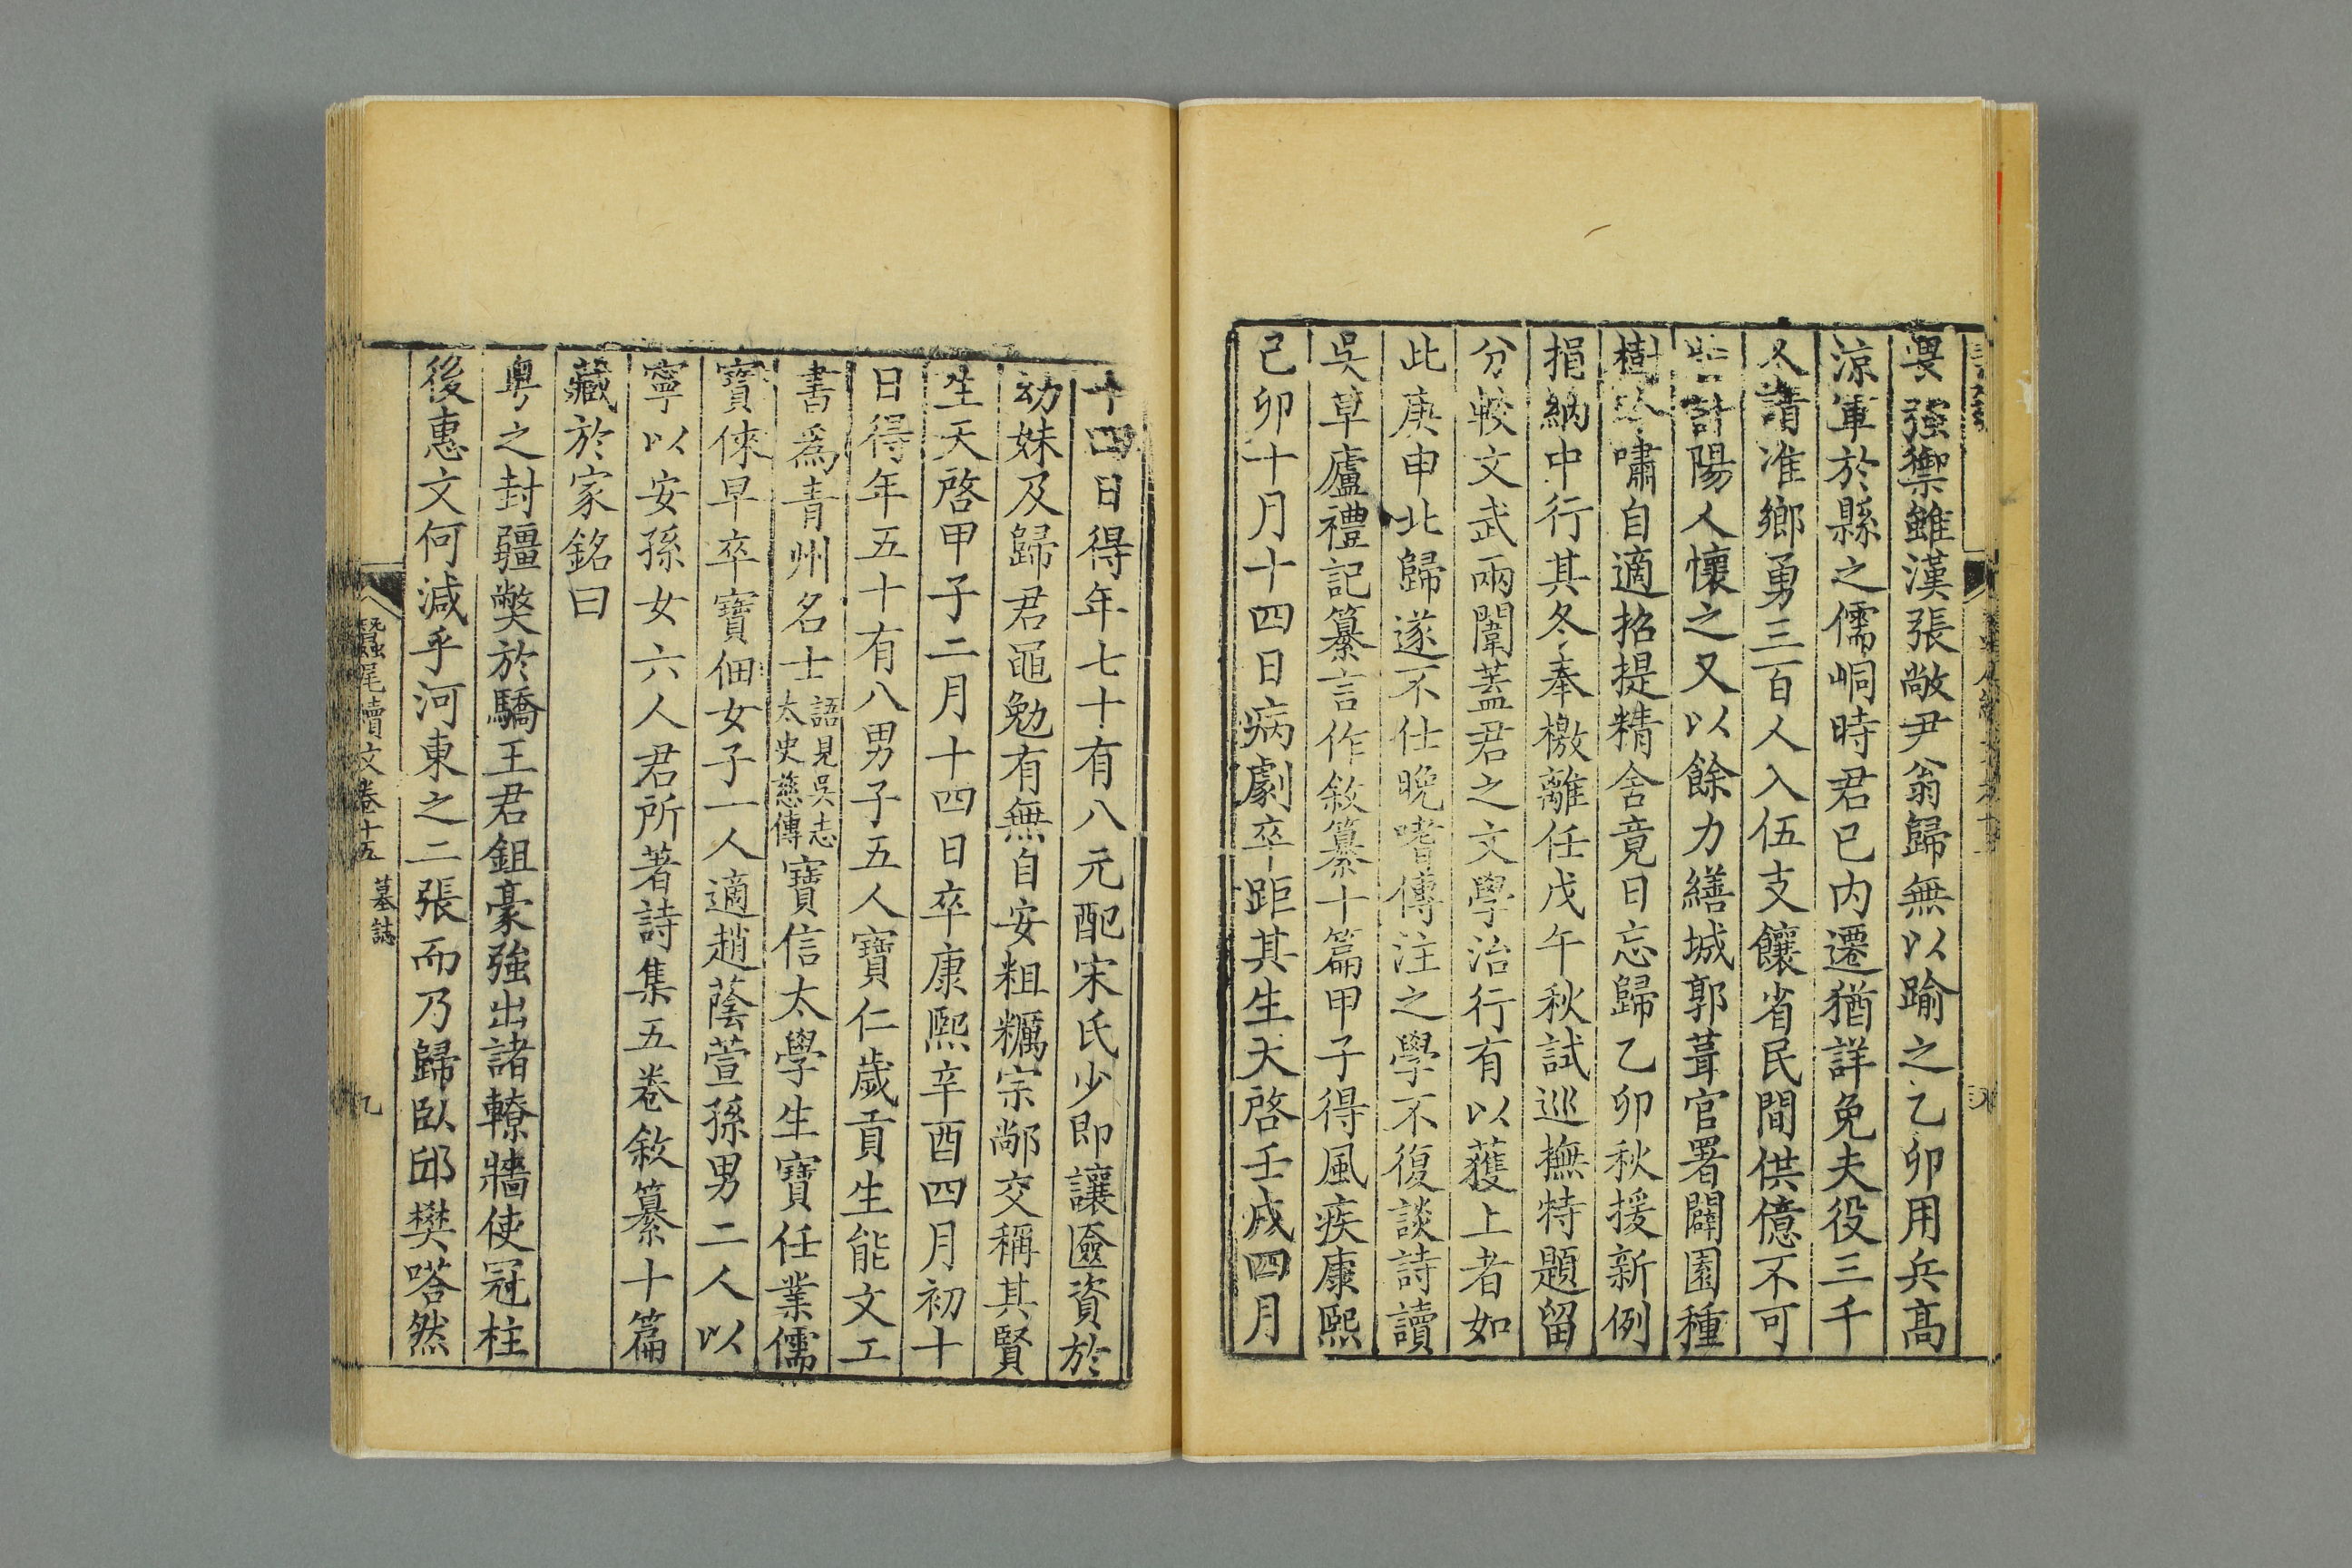 畏強禦雖漢張敞尹翁歸無以踰之乙卯用兵高
涼軍於縣之儒峒時君已内遷猶詳免夫役三千
人請准鄉勇三百人入伍支饟省民間供億不可
計陽人懷之又以餘力繕城郭葺官署闢園種
樹吟嘯自適招提精舍竟日忘歸乙卯秋援新例
捐納中行其冬奉檄離任戊午秋試巡撫特題留
分較文武兩闈蓋君之文學治行有以獲上者如
此庚申北歸遂不仕晩嗜傳注之學不復談詩讀
吳草廬禮記纂言作敘纂十篇甲子得風疾康熙
己卯十月十四日病劇卒距其生天啓壬戌四月
十四日得年七十有八元配宋氏少即讓匳資於
幼妹及歸君黽勉有無自安粗糲宗鄰交稱其賢
生天啓甲子二月十四日卒康熙辛酉四月初十
日得年五十有八男子五人寶仁歲貢生能文工
書爲青州名士語見吳志太史慈傳寶信太學生寶任業儒
寶倈早卒寶佃女子一人適趙蔭萱孫男二人以
寧以安孫女六人君所著詩集五卷敘纂十篇
藏於家銘曰
粤之封疆獘於驕王君鉏豪強出諸轑牆使冠柱
後惠文何減乎河東之二張而乃歸臥邱樊嗒然
蠶尾續文卷十五 墓誌 九